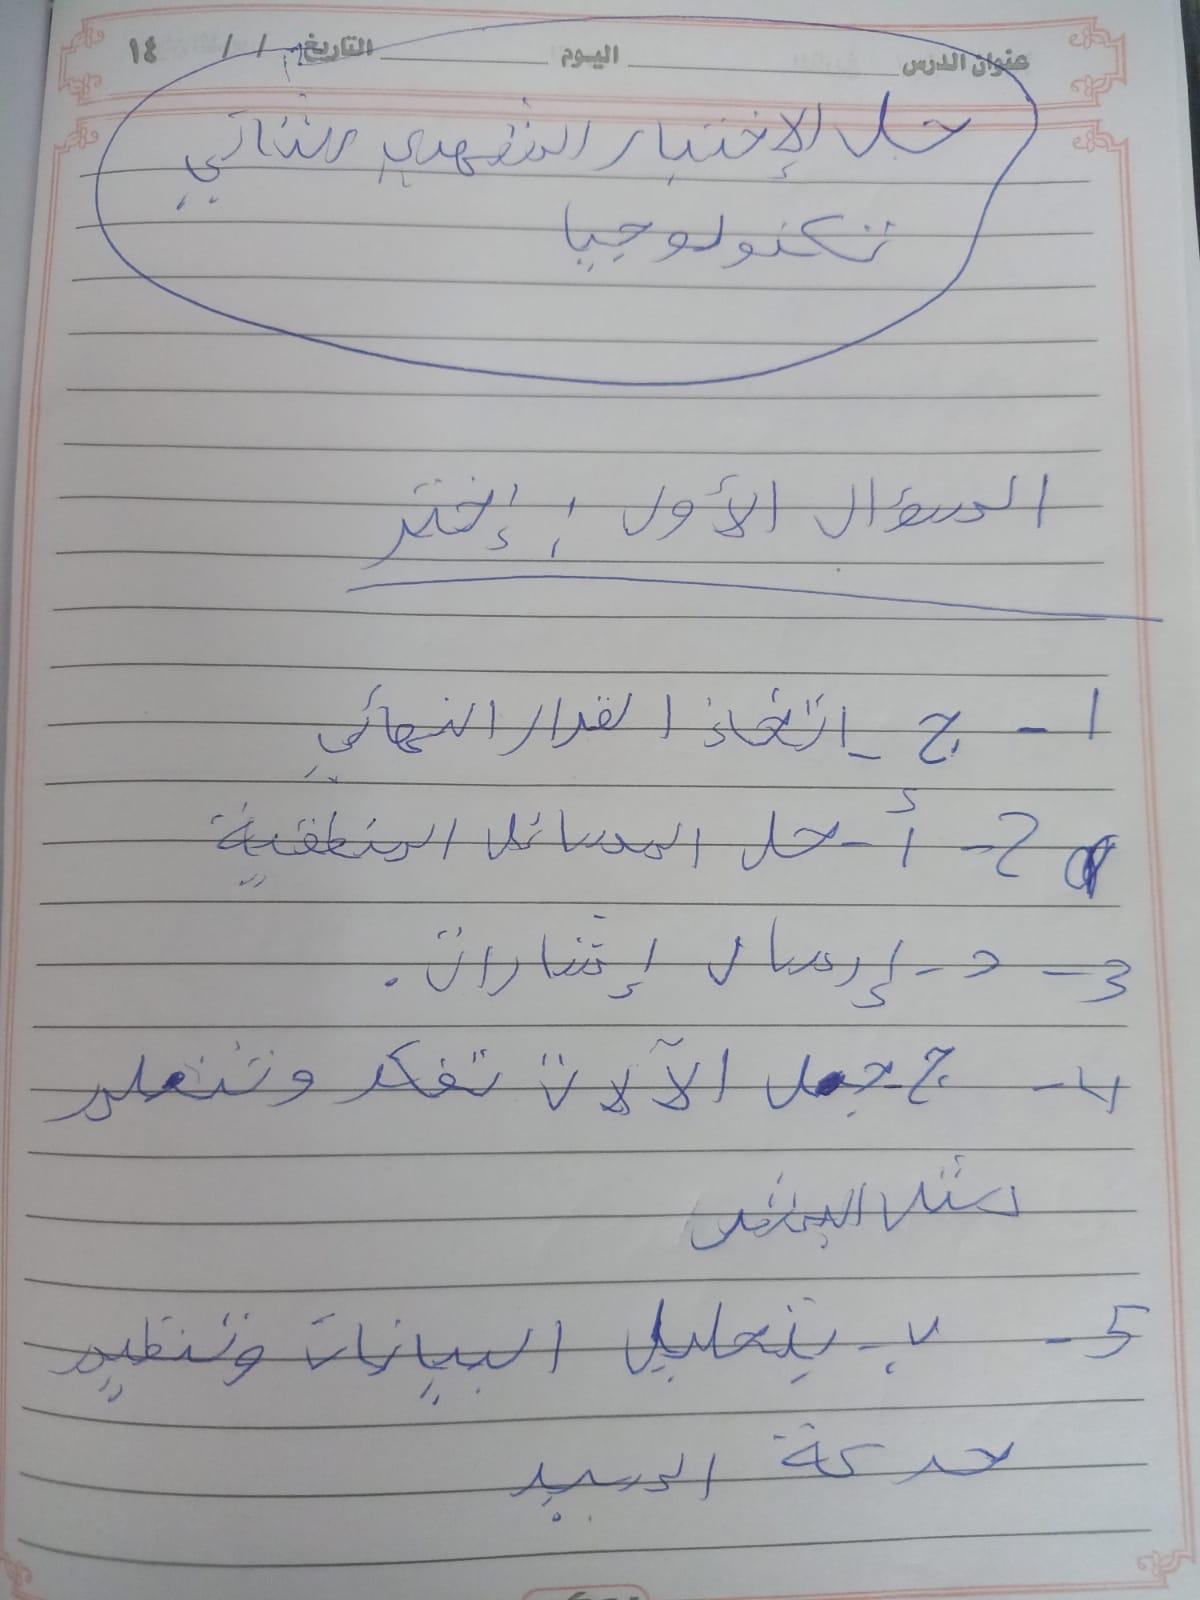 عنوان الدرس اليوم التاريخ / / ١٤
حل الإختبار الشهري الثاني
تكنولوجيا
السؤال الأول : إختر
1 - ج - اتخاذ القرار النهائي
2 - أ - حل المسائل المنطقية
3 - د - إرسال إشارات .
4 - ج - جعل الآلات تفكر وتتعلم
مثل البشر
5 - ب - بتحليل البيانات وتنظيم
حركة السير